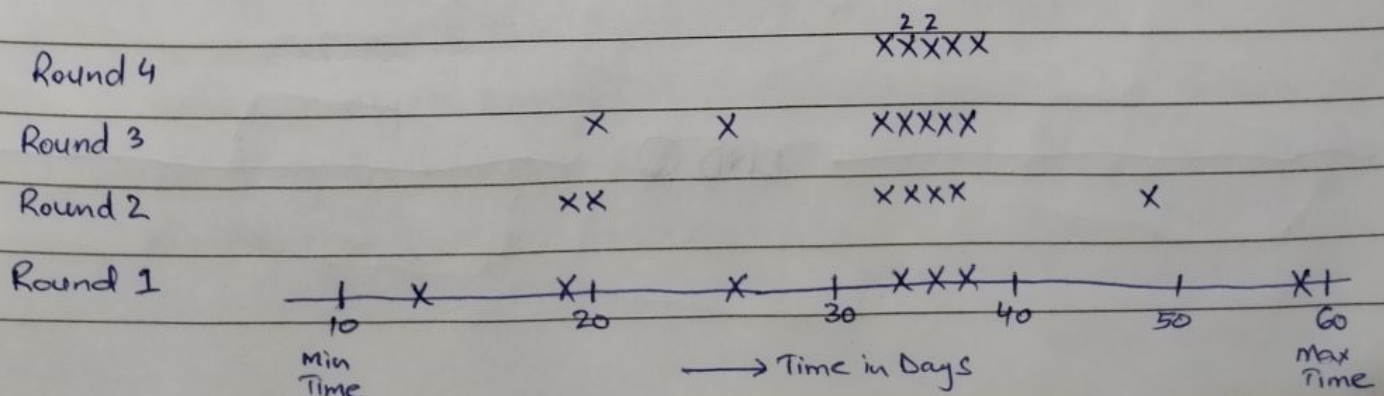 2 2
Round 4 XXXXX
Round 3 X X XXXXX
Round 2 XX XXXX X
Round 1 X X X X X X X
10 20 30 40 50 60
Min Time → Time in Days Max Time